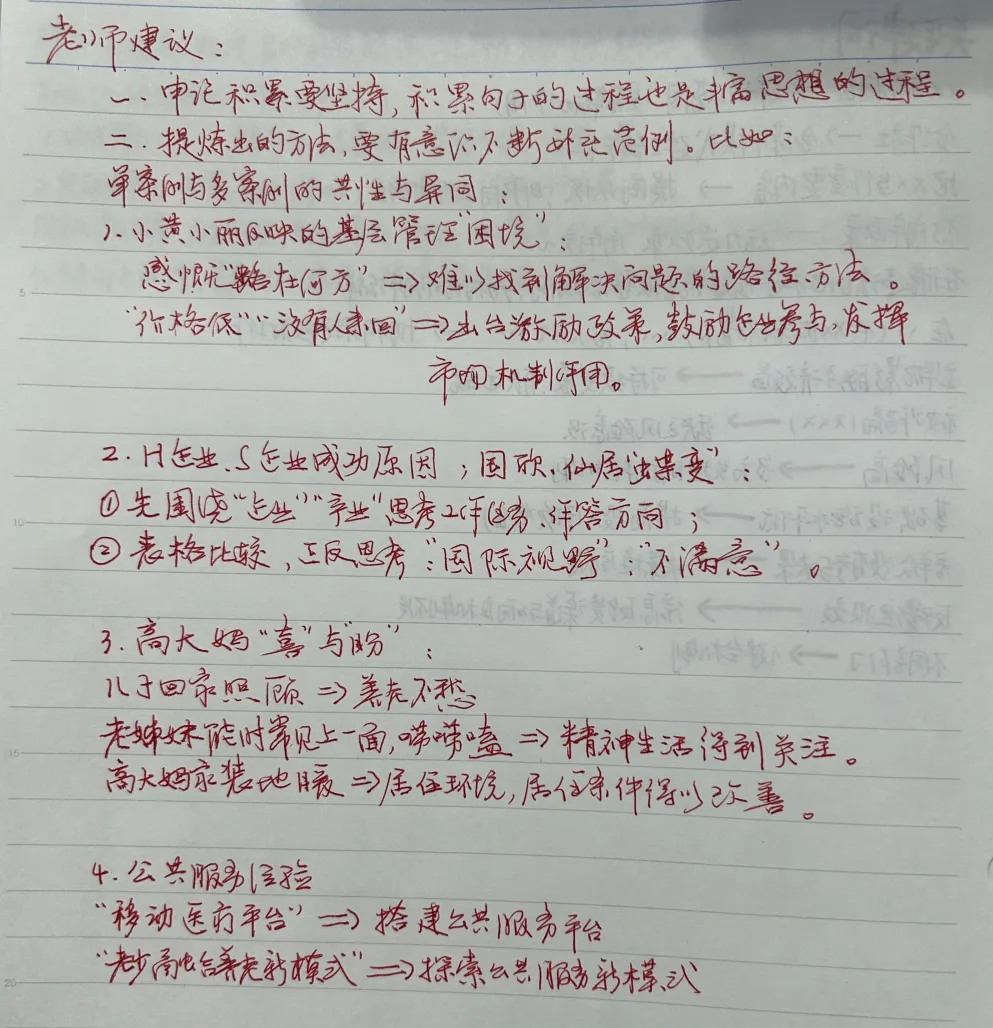 老师建议：
一、申论积累要坚持，积累句子的过程也是丰富思想的过程。
二、提炼出的方法，要有意识不断补充范例。比如：
单案例与多案例的共性与异同：
1、小黄小丽反映的基层管理"困境"：
感慨"路在何方"⇒难以找到解决问题的路径方法。
"价格低""没有人来回"⇒出台激励政策，鼓励企业参与，发挥
市场机制作用。
2、H企业、S企业成功原因；国欧、仙居"蝶变"：
①先围绕"企业""产业"思考工作任务、作答方面；
②表格比较，正反思考："国际视野"："不满意"。
3.高大妈"喜"与"盼"：
儿子回家照顾⇒养老不愁
老姊妹能时常见上一面，唠唠嗑⇒精神生活得到关注。
高大妈家装地暖⇒居住环境，居住条件得以改善。
4.公共服务经验
"移动医疗平台"⇒搭建公共服务平台
"老少融合养老新模式"⇒探索公共服务新模式
5
10
15
20